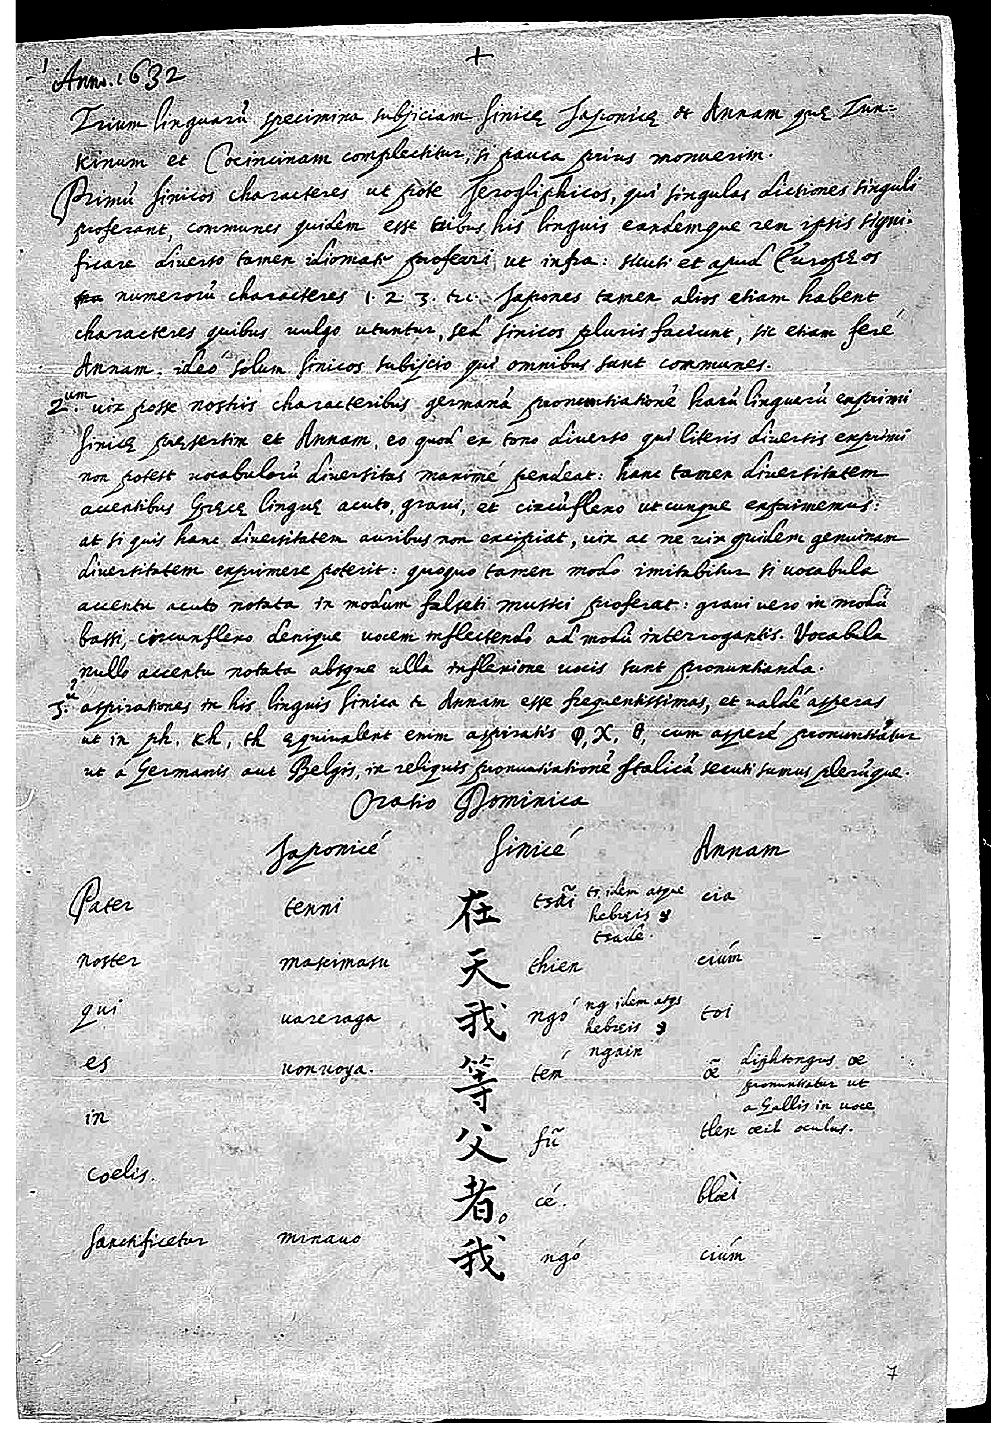 +
Anno. 1632
Trium linguarũ specimina subjiciam Sinicę Japonicę et Annam quę Tun-
kinum et Cocincinam complectitur, si pauca prius monuerim.
Primũ sinicos characteres ut pote jerogliphicos, qui singulas dictiones singuli
proferant, communes quidem esse tribus his linguis eandemque rem ipsis signi-
ficare diverso tamen idiomate proferri, ut infra: sicuti et apud Europęos
numerorũ characteres 1. 2. 3. etc. Japones tamen alios etiam habent
characteres quibus vulgo utuntur, sed sinicos pluris faciunt, sic etiam feré
Annam. ideó solum sinicos subijcio qui omnibus sunt communes.
2.um vix posse nostris characteribus germanã pronuntiationẽ harũ linguarũ exprimi
sinicę pręsertim et Annam, eo quod ex tono diverso qui literis diversis exprimi
non potest vocabulorũ diversitas maximé pendeat: hanc tamen diversitatem
accentibus Gręcę linguę acuto, gravi, et circũflexo utcunque exprimemus:
at si quis hanc diversitatem auribus non excipiat, vix ac ne vix quidem genuinam
diversitatem exprimere poterit: quoquo tamen modo imitabitur si vocabula
accentu acuto notata in modum falseti musici proferat: gravi vero in modũ
bassi, circunflexo denique vocem inflectendo ad modũ interrogantis. Vocabula
nullo accentu notata absque ulla inflexione vocis sunt pronuntianda.
3. aspirationes in his linguis sinica et Annam esse frequentissimas, et valdé asperas
ut in ph. kh, th ęquivalent enim aspiratis φ, χ, θ, cum asperé pronuntiãtur
ut a Germanis aut Belgis, in reliquis pronuntiationẽ Italicã secuti sumus plerũque.
Oratio Dominica
Japonicé Sinicé Annam
Pater tenni 在 tsãi ts, idem atque cia
hebręis
tsade.
noster masimasu 天 thien ciúm
qui vareraga 我 ngó ng idem atqs toi
hebręis
ngain
es vonvoya. 等 tén œ̃ diphtongus œ
pronuntiatur ut
a Gallis in voce
in 父 fũ tlen œil oculus.
coelis. 者。 cé. blœ̀i
sanctificetur minavo 我 ngó ciúm
7